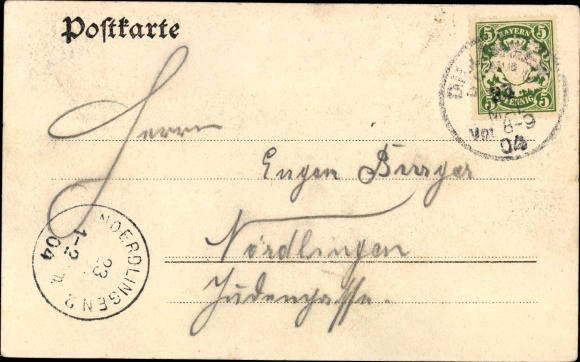 Postkarte
5 BAYERN 5
5 PFENNIG 5
Vor. 8-9
04
Herrn
Eugen Burger
Nördlingen
Judengasse.
NOERDLINGEN 2
23
1-2 N.
04